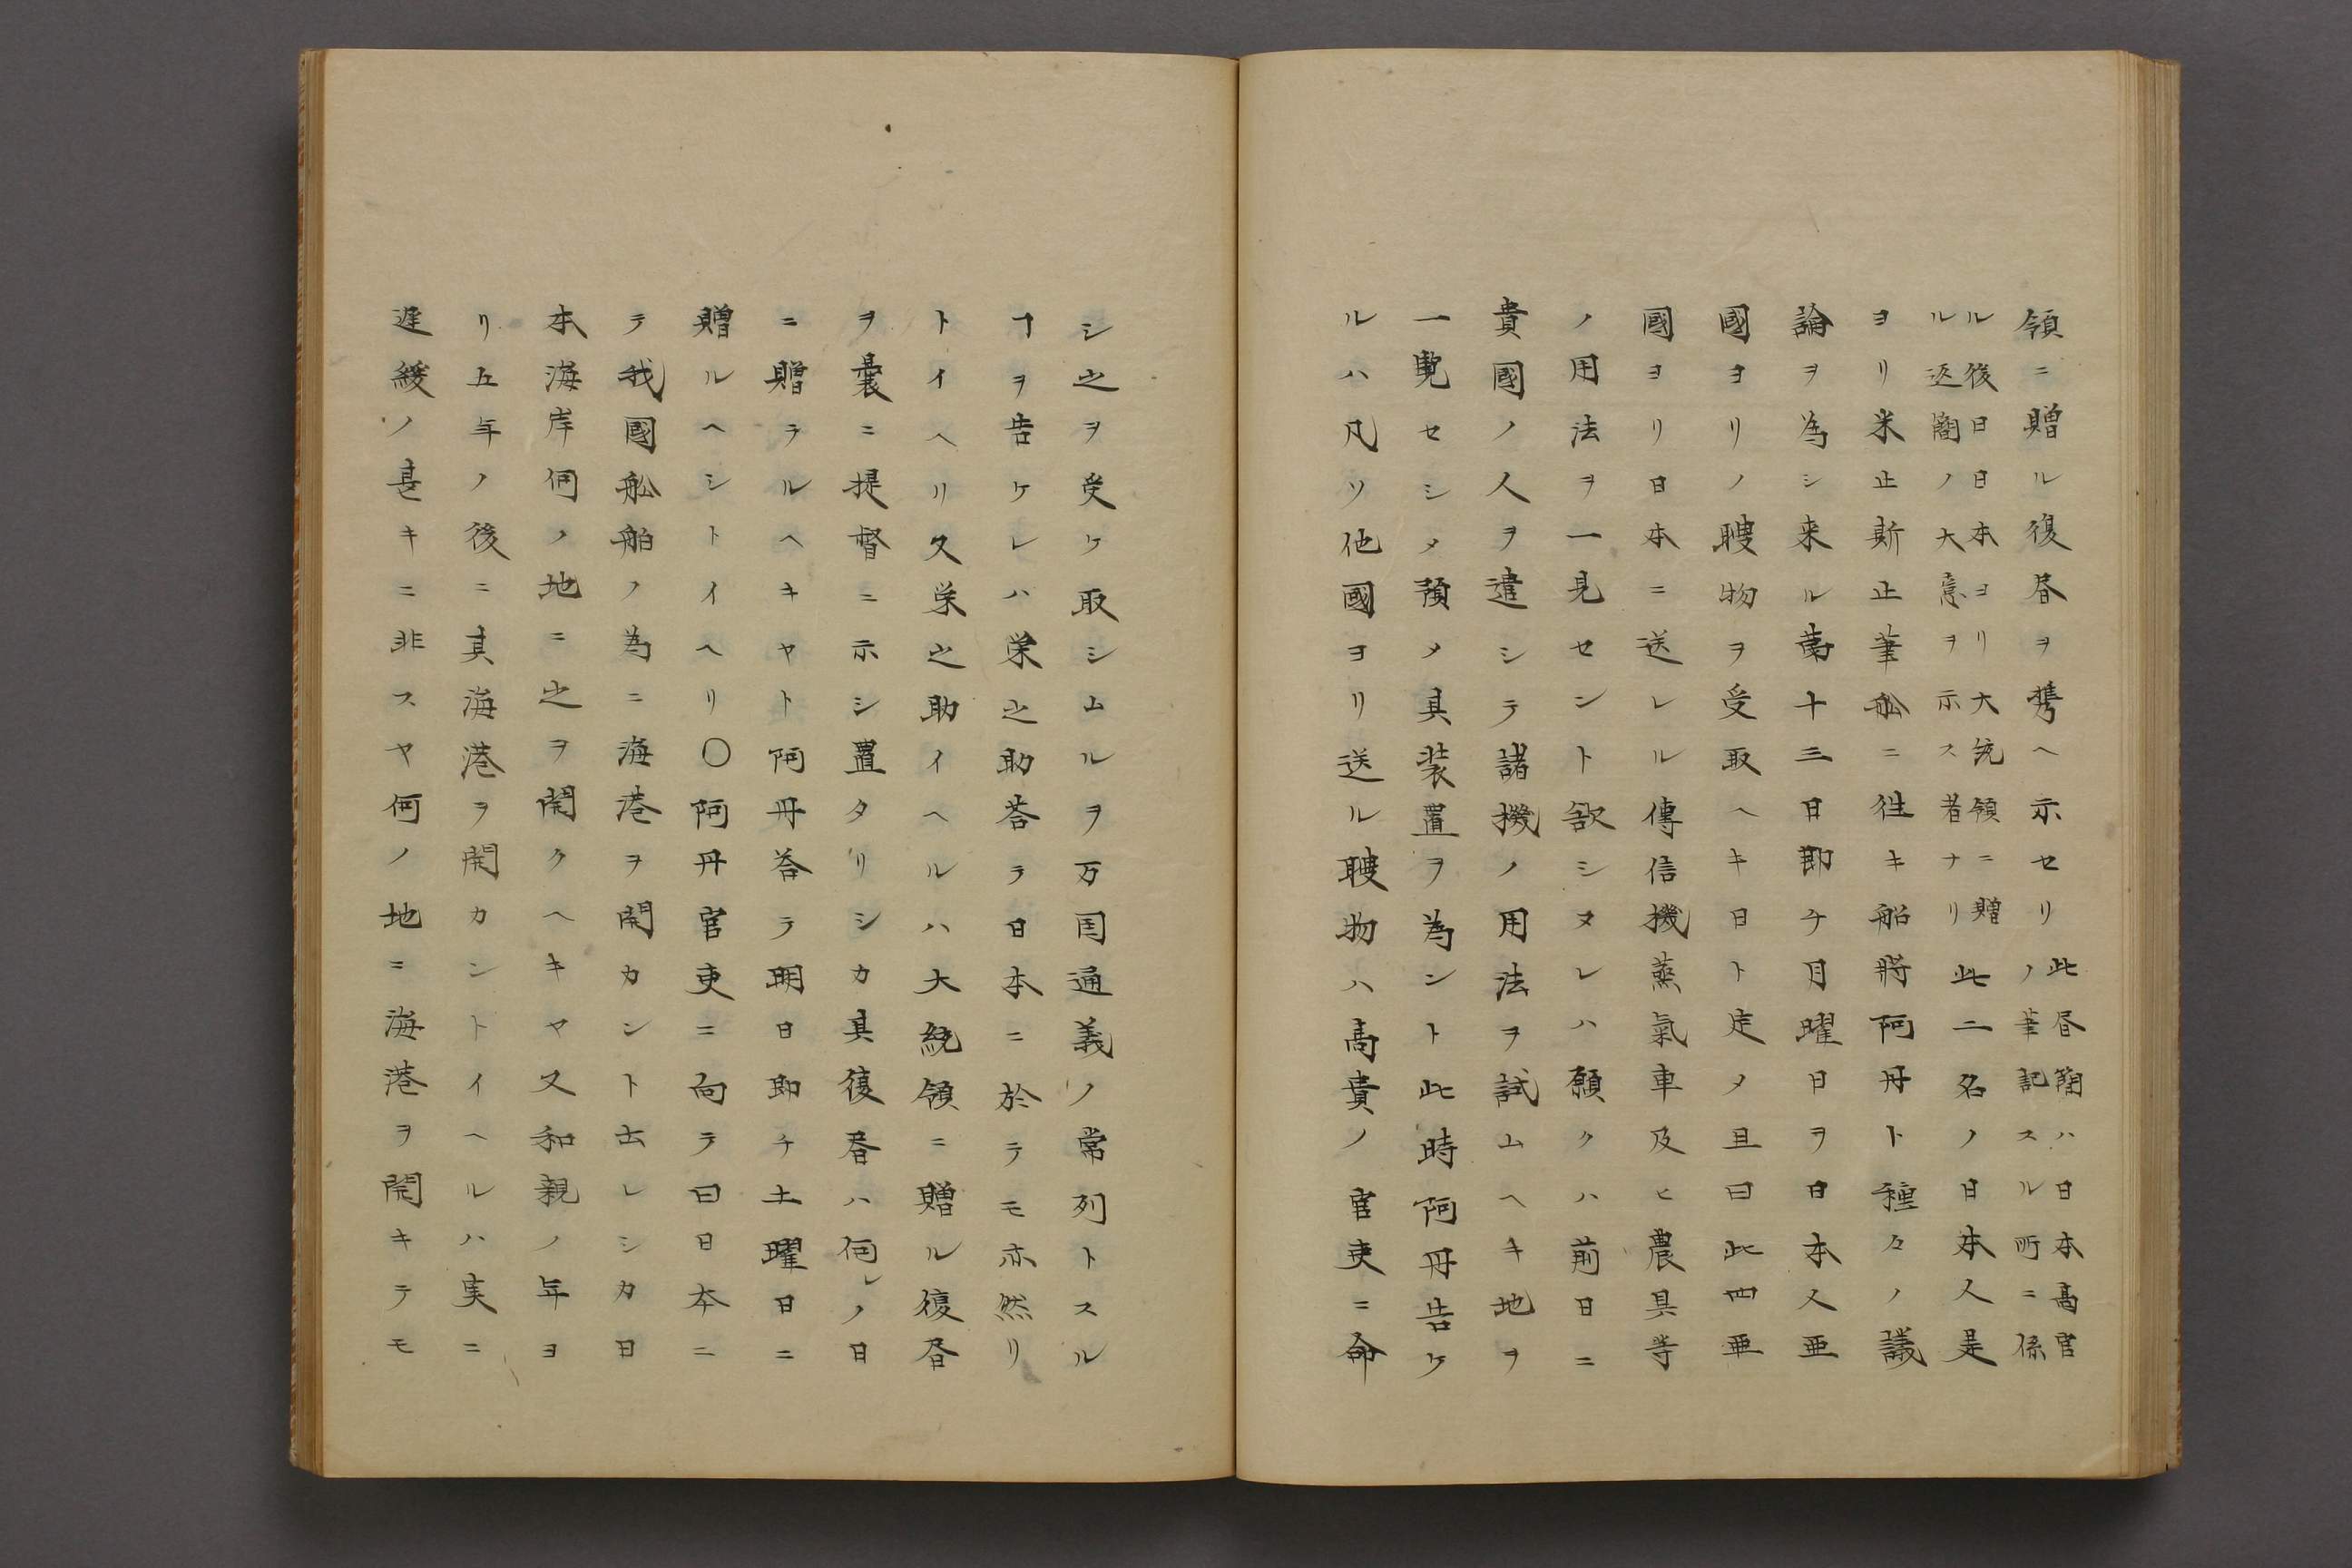 領ニ贈ル復书ヲ携ヘ示セリ
此书簡ハ日本高官
ノ筆記スル所ニ係
ル後日日本ヨリ大統領ニ贈
ル返簡ノ大意ヲ示ス者ナリ
此二名ノ日本人是
ヨリ米止斯止筆舩ニ徃キ船將阿丹ト種々ノ議
論ヲ為シ来ル苐十三日即チ月曜日ヲ日本人亜
國ヨリノ聘物ヲ受取ヘキ日ト定メ且曰此四亜
國ヨリ日本ニ送レル傳信機蒸氣車及ヒ農具等
ノ用法ヲ一見セント欲シヌレハ願クハ前日ニ
貴國ノ人ヲ遣シテ諸機ノ用法ヲ試ムヘキ地ヲ
一覧セシメ預メ其装置ヲ為ント此時阿丹告ケ
ルハ凡ソ他國ヨリ送ル聘物ハ高貴ノ官吏ニ命
シ之ヲ受ケ取シムルヲ万国通義ノ常列トスル
ヿヲ告ケレハ栄之助荅テ日本ニ於テモ亦然リ
トイヘリ又栄之助イヘルハ大統領ニ贈ル復书
ヲ曩ニ提督ニ示シ置タリシカ其復书ハ何レノ日
ニ贈ラルヘキヤト阿丹荅テ明日即チ土曜日ニ
贈ルヘシトイヘリ〇阿丹官吏ニ向テ曰日本ニ
テ我國舩舶ノ為ニ海港ヲ開カント云レシカ日
本海岸何ノ地ニ之ヲ開クヘキヤ又和親ノ年ヨ
リ五年ノ後ニ其海港ヲ開カントイヘルハ実ニ
遅緩ノ甚キニ非スヤ何ノ地ニ海港ヲ開キテモ